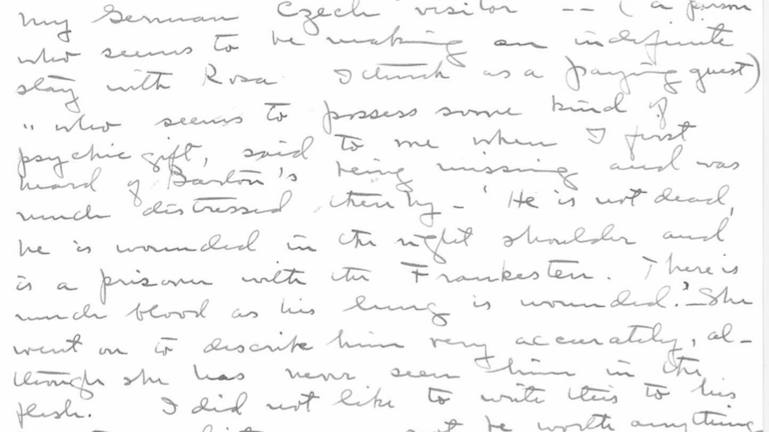 my German Czech visitor -- (a person
who seems to be making an indefinite
stay with Rosa I think as a paying guest)
" who seems to possess some kind of
psychic gift, said to me when I first
heard of Barton's being missing and was
much distressed thereby - 'He is not dead,
he is wounded in the right shoulder and
is a prisoner with the Frankesten. There is
much blood as his lung is wounded.' She
went on to describe him very accurately, al-
though she has never seen him in the
flesh. I did not like to write this to his
be worth anything